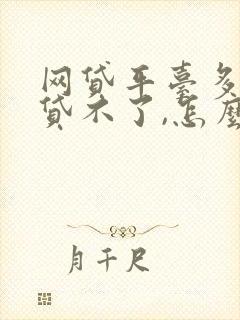 网贷平臺多
贷不了,怎麼
月千尺